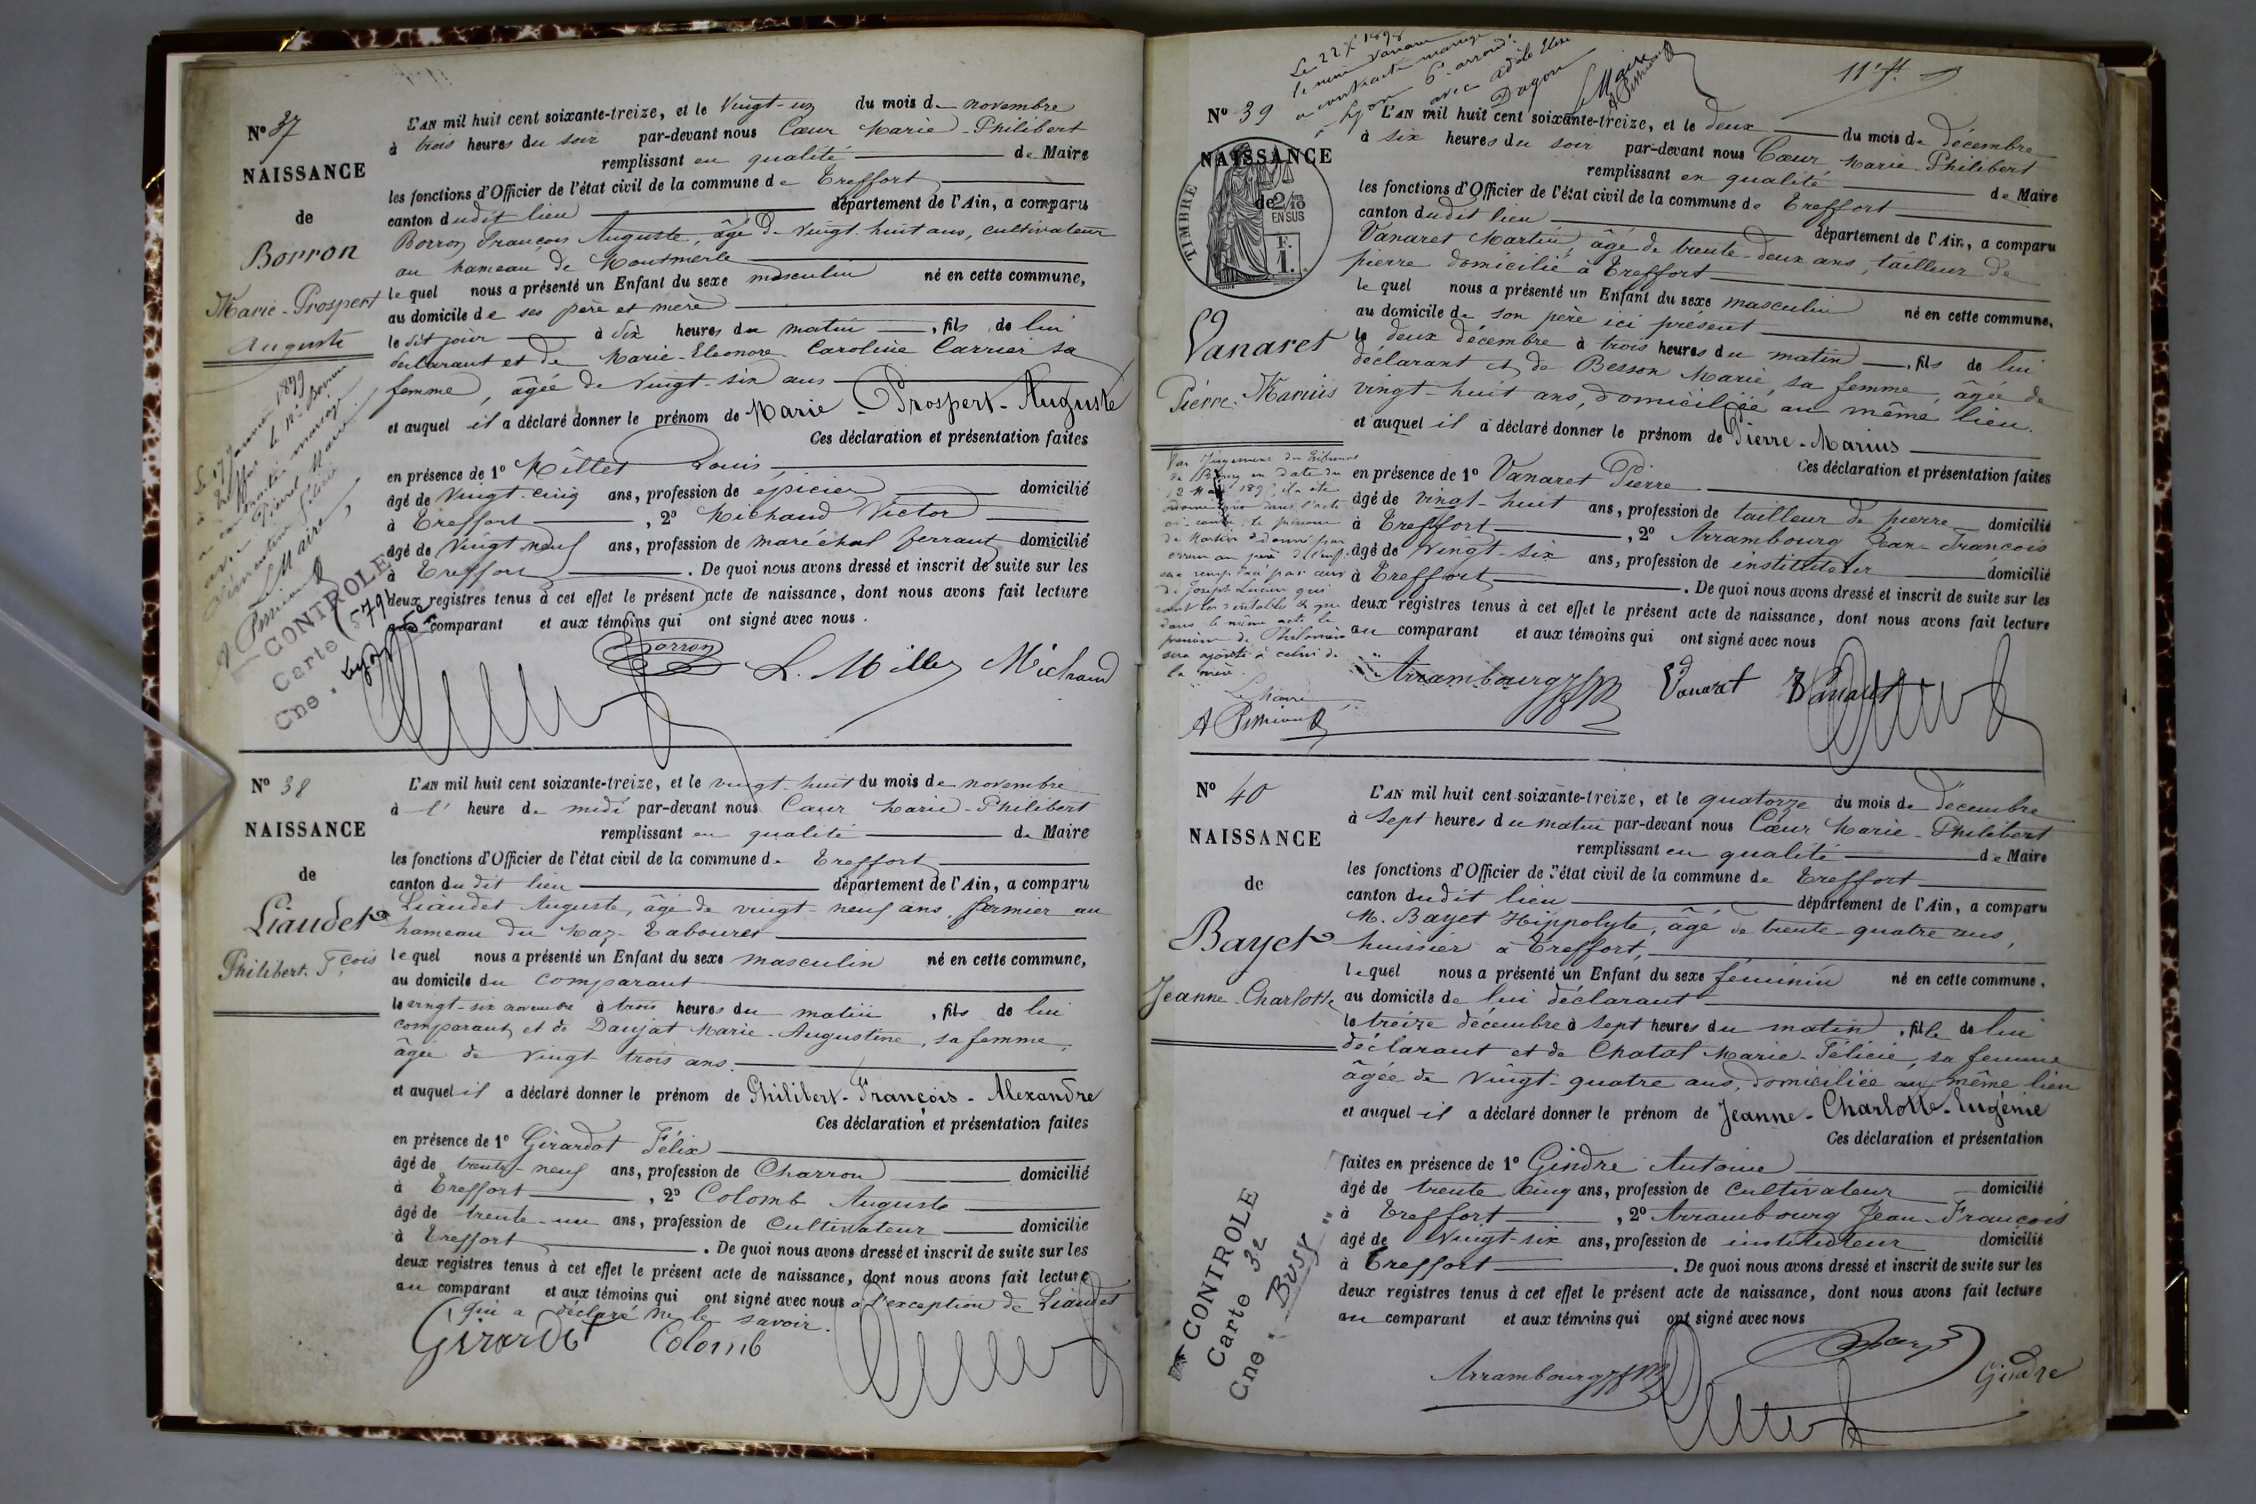 Nº 37
NAISSANCE
de
Borron
Marie-Prospert
Auguste
L'AN mil huit cent soixante-treize, et le vingt-un du mois de novembre
à trois heures du soir par-devant nous Cœur Marie-Philibert
remplissant en qualité de Maire
les fonctions d'Officier de l'état civil de la commune de Treffort
canton dudit lieu département de l'Ain, a comparu
Borron François Auguste, âgé de vingt-huit ans, cultivateur
au hameau de Montmerle
lequel nous a présenté un Enfant du sexe masculin né en cette commune,
au domicile de ses père et mère
le dit jour à dix heures du matin, fils de lui
déclarant et de Marie-Eleonore Caroline Carrier sa
femme, âgée de vingt-six ans
et auquel il a déclaré donner le prénom de Marie-Prospert-Auguste
Ces déclaration et présentation faites
en présence de 1º Millet Louis
âgé de vingt-cinq ans, profession de épicier domicilié
à Treffort, 2º Michaud Victor
âgé de vingt neuf ans, profession de maréchal ferrant domicilié
à Treffort. De quoi nous avons dressé et inscrit de suite sur les
deux registres tenus à cet effet le présent acte de naissance, dont nous avons fait lecture
au comparant et aux témoins qui ont signé avec nous.
Borron L. Millet Michaud
Le Maire
CONTROLE
Carte
Cne. Lyon
Nº 38
NAISSANCE
de
Liaudet
Philibert-Fçois
L'AN mil huit cent soixante-treize, et le vingt-huit du mois de novembre
à l' heure de midi par-devant nous Cœur Marie-Philibert
remplissant en qualité de Maire
les fonctions d'Officier de l'état civil de la commune de Treffort
canton du dit lieu département de l'Ain, a comparu
Liaudet Auguste, âgé de vingt-neuf ans, fermier au
hameau du Maz-Tabouret
lequel nous a présenté un Enfant du sexe masculin né en cette commune,
au domicile du comparant
le vingt-six novembre à trois heures du matin, fils de lui
comparant et de Daujat Marie-Augustine, sa femme,
âgée de vingt trois ans.
et auquel il a déclaré donner le prénom de Philibert-François-Alexandre
Ces déclaration et présentation faites
en présence de 1º Girardot Félix
âgé de trente-neuf ans, profession de Charron domicilié
à Treffort, 2º Colomb Auguste
âgé de trente-un ans, profession de Cultivateur domicilié
à Treffort. De quoi nous avons dressé et inscrit de suite sur les
deux registres tenus à cet effet le présent acte de naissance, dont nous avons fait lecture
au comparant et aux témoins qui ont signé avec nous à l'exception de Liaudet
qui a déclaré ne le savoir.
Girardot Colomb
Le 22 X 1898
le nommé Vanaret
a contracté mariage
à Lyon 6e arrondt
avec Adèle
Dagon
Le Maire
11e ft
Nº 39
NAISSANCE
de
TIMBRE
2/10
EN SUS
F.
1.
Vanaret
Pierre-Marius
L'AN mil huit cent soixante-treize, et le deux du mois de décembre
à six heures du soir par-devant nous Cœur Marie-Philibert
remplissant en qualité de Maire
les fonctions d'Officier de l'état civil de la commune de Treffort
canton dudit lieu département de l'Ain, a comparu
Vanaret Martin, âgé de trente-deux ans, tailleur de
pierre domicilié à Treffort
lequel nous a présenté un Enfant du sexe masculin né en cette commune,
au domicile de son père ici présent
le deux décembre à trois heures du matin, fils de lui
déclarant et de Besson Marie, sa femme, âgée de
vingt-huit ans, domiciliée au même lieu.
et auquel il a déclaré donner le prénom de Pierre-Marius
Ces déclaration et présentation faites
en présence de 1º Vanaret Pierre
âgé de vingt-huit ans, profession de tailleur de pierre domicilié
à Treffort, 2º Arrambourg Jean-François
âgé de vingt-six ans, profession de instituteur domicilié
à Treffort. De quoi nous avons dressé et inscrit de suite sur les
deux registres tenus à cet effet le présent acte de naissance, dont nous avons fait lecture
au comparant et aux témoins qui ont signé avec nous
Par Jugement du tribunal
de Bourg en date du
de Joseph Lucien qui
dans le même acte le
prénom de Philomène
sera ajouté à celui de
la mère.
Le Maire
Arrambourg Vanaret Vanaret
Nº 40
NAISSANCE
de
Bayet
Jeanne-Charlotte
L'AN mil huit cent soixante-treize, et le quatorze du mois de décembre
à sept heures du matin par-devant nous Cœur Marie-Philibert
remplissant en qualité de Maire
les fonctions d'Officier de l'état civil de la commune de Treffort
canton dudit lieu département de l'Ain, a comparu
M. Bayet Hippolyte, âgé de trente-quatre ans,
huissier à Treffort,
lequel nous a présenté un Enfant du sexe féminin né en cette commune,
au domicile de lui déclarant
le treize décembre à sept heures du matin, fille de lui
déclarant et de Chatal Marie-Félicie, sa femme
âgée de vingt-quatre ans, domiciliée au même lieu
et auquel il a déclaré donner le prénom de Jeanne-Charlotte-Eugénie
Ces déclaration et présentation
faites en présence de 1º Gindre Antoine
âgé de trente cinq ans, profession de cultivateur domicilié
à Treffort, 2º Arrambourg Jean-François
âgé de vingt-six ans, profession de instituteur domicilié
à Treffort. De quoi nous avons dressé et inscrit de suite sur les
deux registres tenus à cet effet le présent acte de naissance, dont nous avons fait lecture
au comparant et aux témoins qui ont signé avec nous
CONTROLE
Carte 32
Cne. Busy
Arrambourg Bayet Gindre